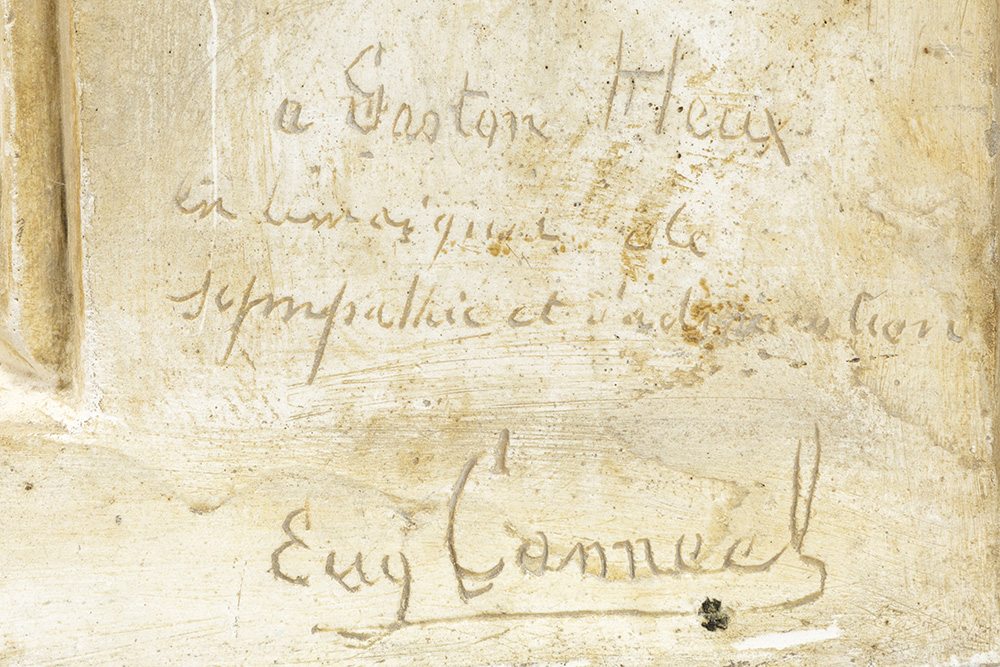 a Gaston Heux
en témoignage de
sympathie et d'admiration
Eug Canneel